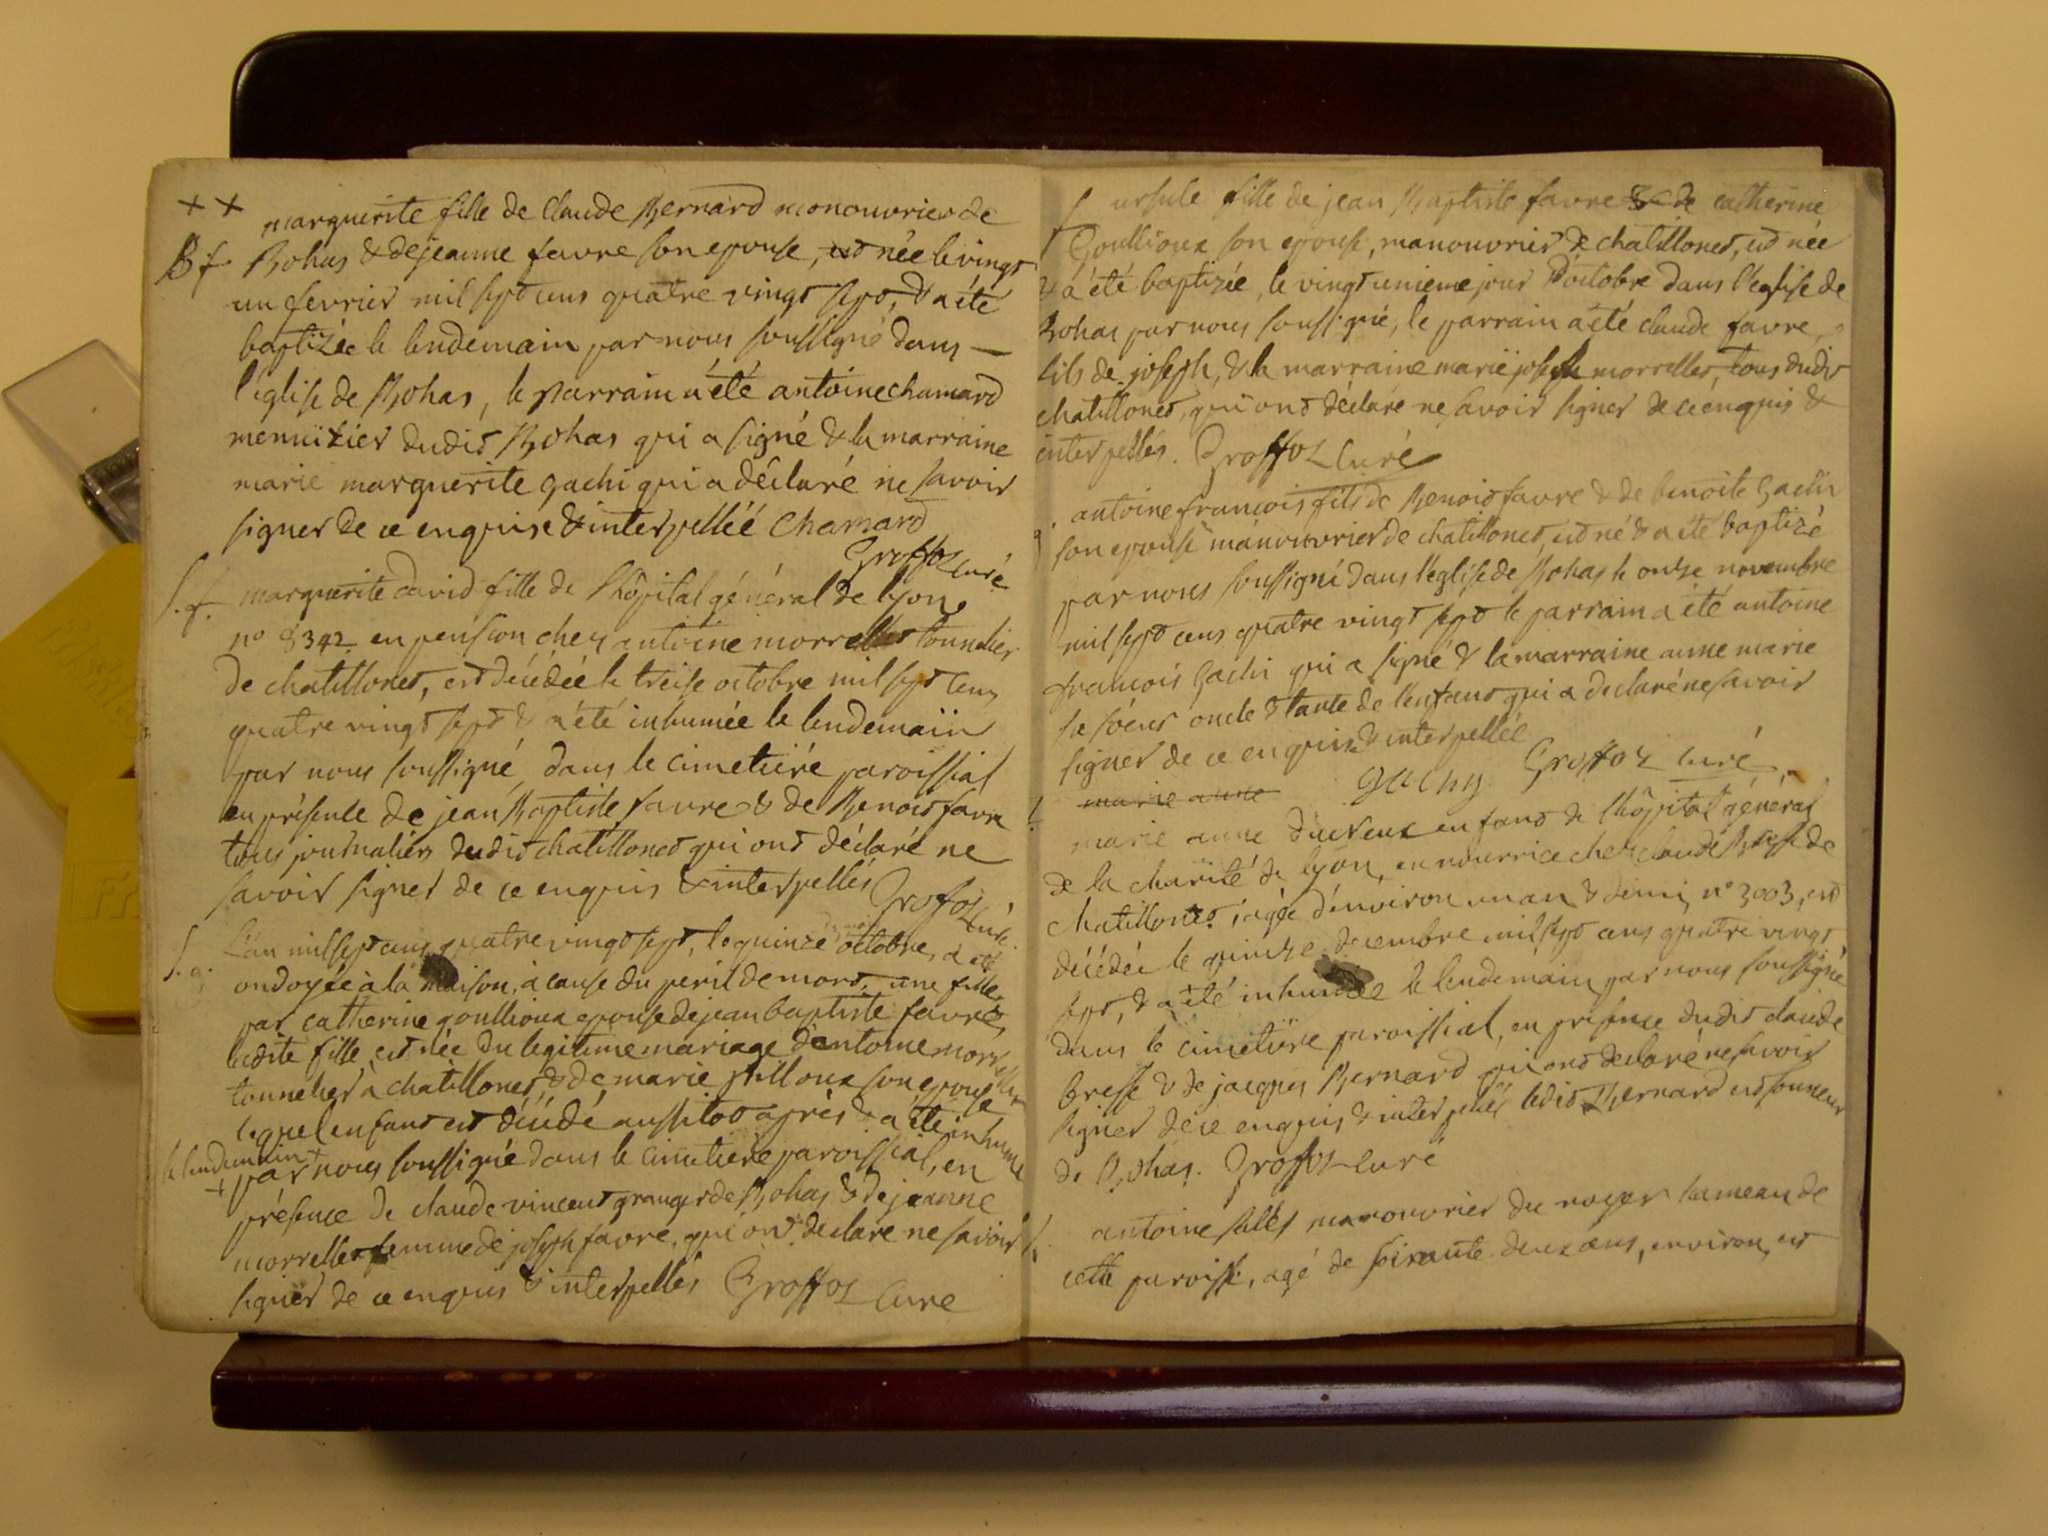 ++
marguerite fille de claude Bernard manouvrier de
B f Rohas & de jeanne favre son epouse, est née le vingt
un fevrier mil sept cens quatre vingt sept, & a été
baptizée le lendemain par nous soussigné dans
l'église de Rohas, le parrain a été antoine chamard
menuisier dudit Rohas qui a signé & la marraine
marie marguerite gachi qui a déclaré ne savoir
signer de ce enquise & interpelléé Chamard
Groffoz curé
S. f. marguerite david fille de l'hôpital général de lyon
no 8342 en pension chez antoine morrellet tonnelier
de chatillonet, est décédée le treise octobre mil sept cens
quatre vingt sept & a été inhumée le lendemain
par nous soussigné dans le cimetière paroissial
en présence de jean Baptiste favre & de Benoit favre
tous journaliers dudit chatillonet qui ont déclaré ne
savoir signer de ce enquis & interpellés Groffoz curé
S. g. L'an mil sept cens quatre vingt sept, le quinze octobre, a été
ondoyée à la maison, à cause du peril de mort, une fille
par catherine goullioux epouse de jean baptiste favre
ladite fille est née du legitime mariage d'antoine morrellet
tonnelier à chatillonet, & de marie pilloux son epouse
lequel enfant est décédé aussitot après & a été inhumé
le lendemain + par nous soussigné dans le cimetière paroissial, en
présence de claude vincent granger de Rohas & de jeanne
morrellet femme de joseph favre, qui ont declaré ne savoir
signer de ce enquis & interpellés Groffoz curé
ursule fille de jean Baptiste favre & de catherine
Goullioux son epouse, manouvrier de chatillonet, est née
& a été baptizée, le vingt unieme jour d'octobre dans l'eglise de
Rohas par nous soussigné, le parrain a été claude favre,
fils de joseph, & la marraine marie joseph morrellet, tous dudit
chatillonet, qui ont déclaré ne savoir signer de ce enquis &
interpellés. Groffoz curé
antoine françois fils de Benoit favre & de benoite Gachi
son epouse manouvrier de chatillonet, est né & a été baptizé
par nous soussigné dans l'église de Rohas le onze novembre
mil sept cens quatre vingt sept le parrain a été antoine
françois Gachi qui a signé & la marraine anne marie
sa sœur oncle & tante de l'enfant qui a declaré ne savoir
signer de ce enquise & interpellée
gachy Groffoz curé
marie anne
marie anne enfant de l'hôpital général
de la charité de lyon, en nourrice chez claude Bresse de
chatillonet, agée d'environ un an & demi, n° 3003, est
décédée le quinze decembre mil sept cens quatre vingt
sept, & a été inhumée le lendemain par nous soussigné
dans le cimetière paroissial, en présence dudit claude
bresse & de jacques Bernard qui ont declaré ne savoir
signer de ce enquis & interpellés ledit Bernard est sonneur
de Rohas. Groffoz curé
antoine manouvrier du noyer hameau de
cette paroisse, agé de soixante deux ans, environ, est